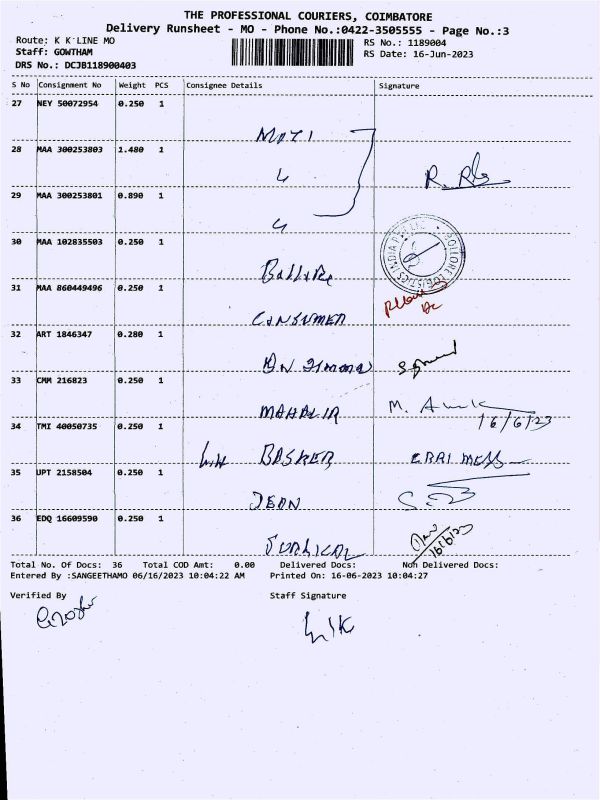 THE PROFESSIONAL COURIERS, COIMBATORE
Delivery Runsheet - MO - Phone No.:0422-3505555 - Page No.:3
Route: K K LINE MO
RS No.: 1189004
Staff: GOWTHAM
RS Date: 16-Jun-2023
DRS No.: DCJB118900403
S No Consignment No Weight PCS Consignee Details Signature
27 NEY 50072954 0.250 1
MOTI
28 MAA 300253803 1.480 1
29 MAA 300253801 0.890 1
30 MAA 102835503 0.250 1
31 MAA 860449496 0.250 1
CONSUMER
32 ART 1846347 0.280 1
33 CMM 216823 0.250 1
MAHAVIR M.
16/6/23
34 TMI 40050735 0.250 1
BASKER
35 UPT 2158504 0.250 1
JEON
36 EDQ 16609590 0.250 1
SURGICAL 16/6/23
Total No. Of Docs: 36 Total COD Amt: 0.00 Delivered Docs: Non Delivered Docs:
Entered By :SANGEETHAMO 06/16/2023 10:04:22 AM Printed On: 16-06-2023 10:04:27
Verified By Staff Signature